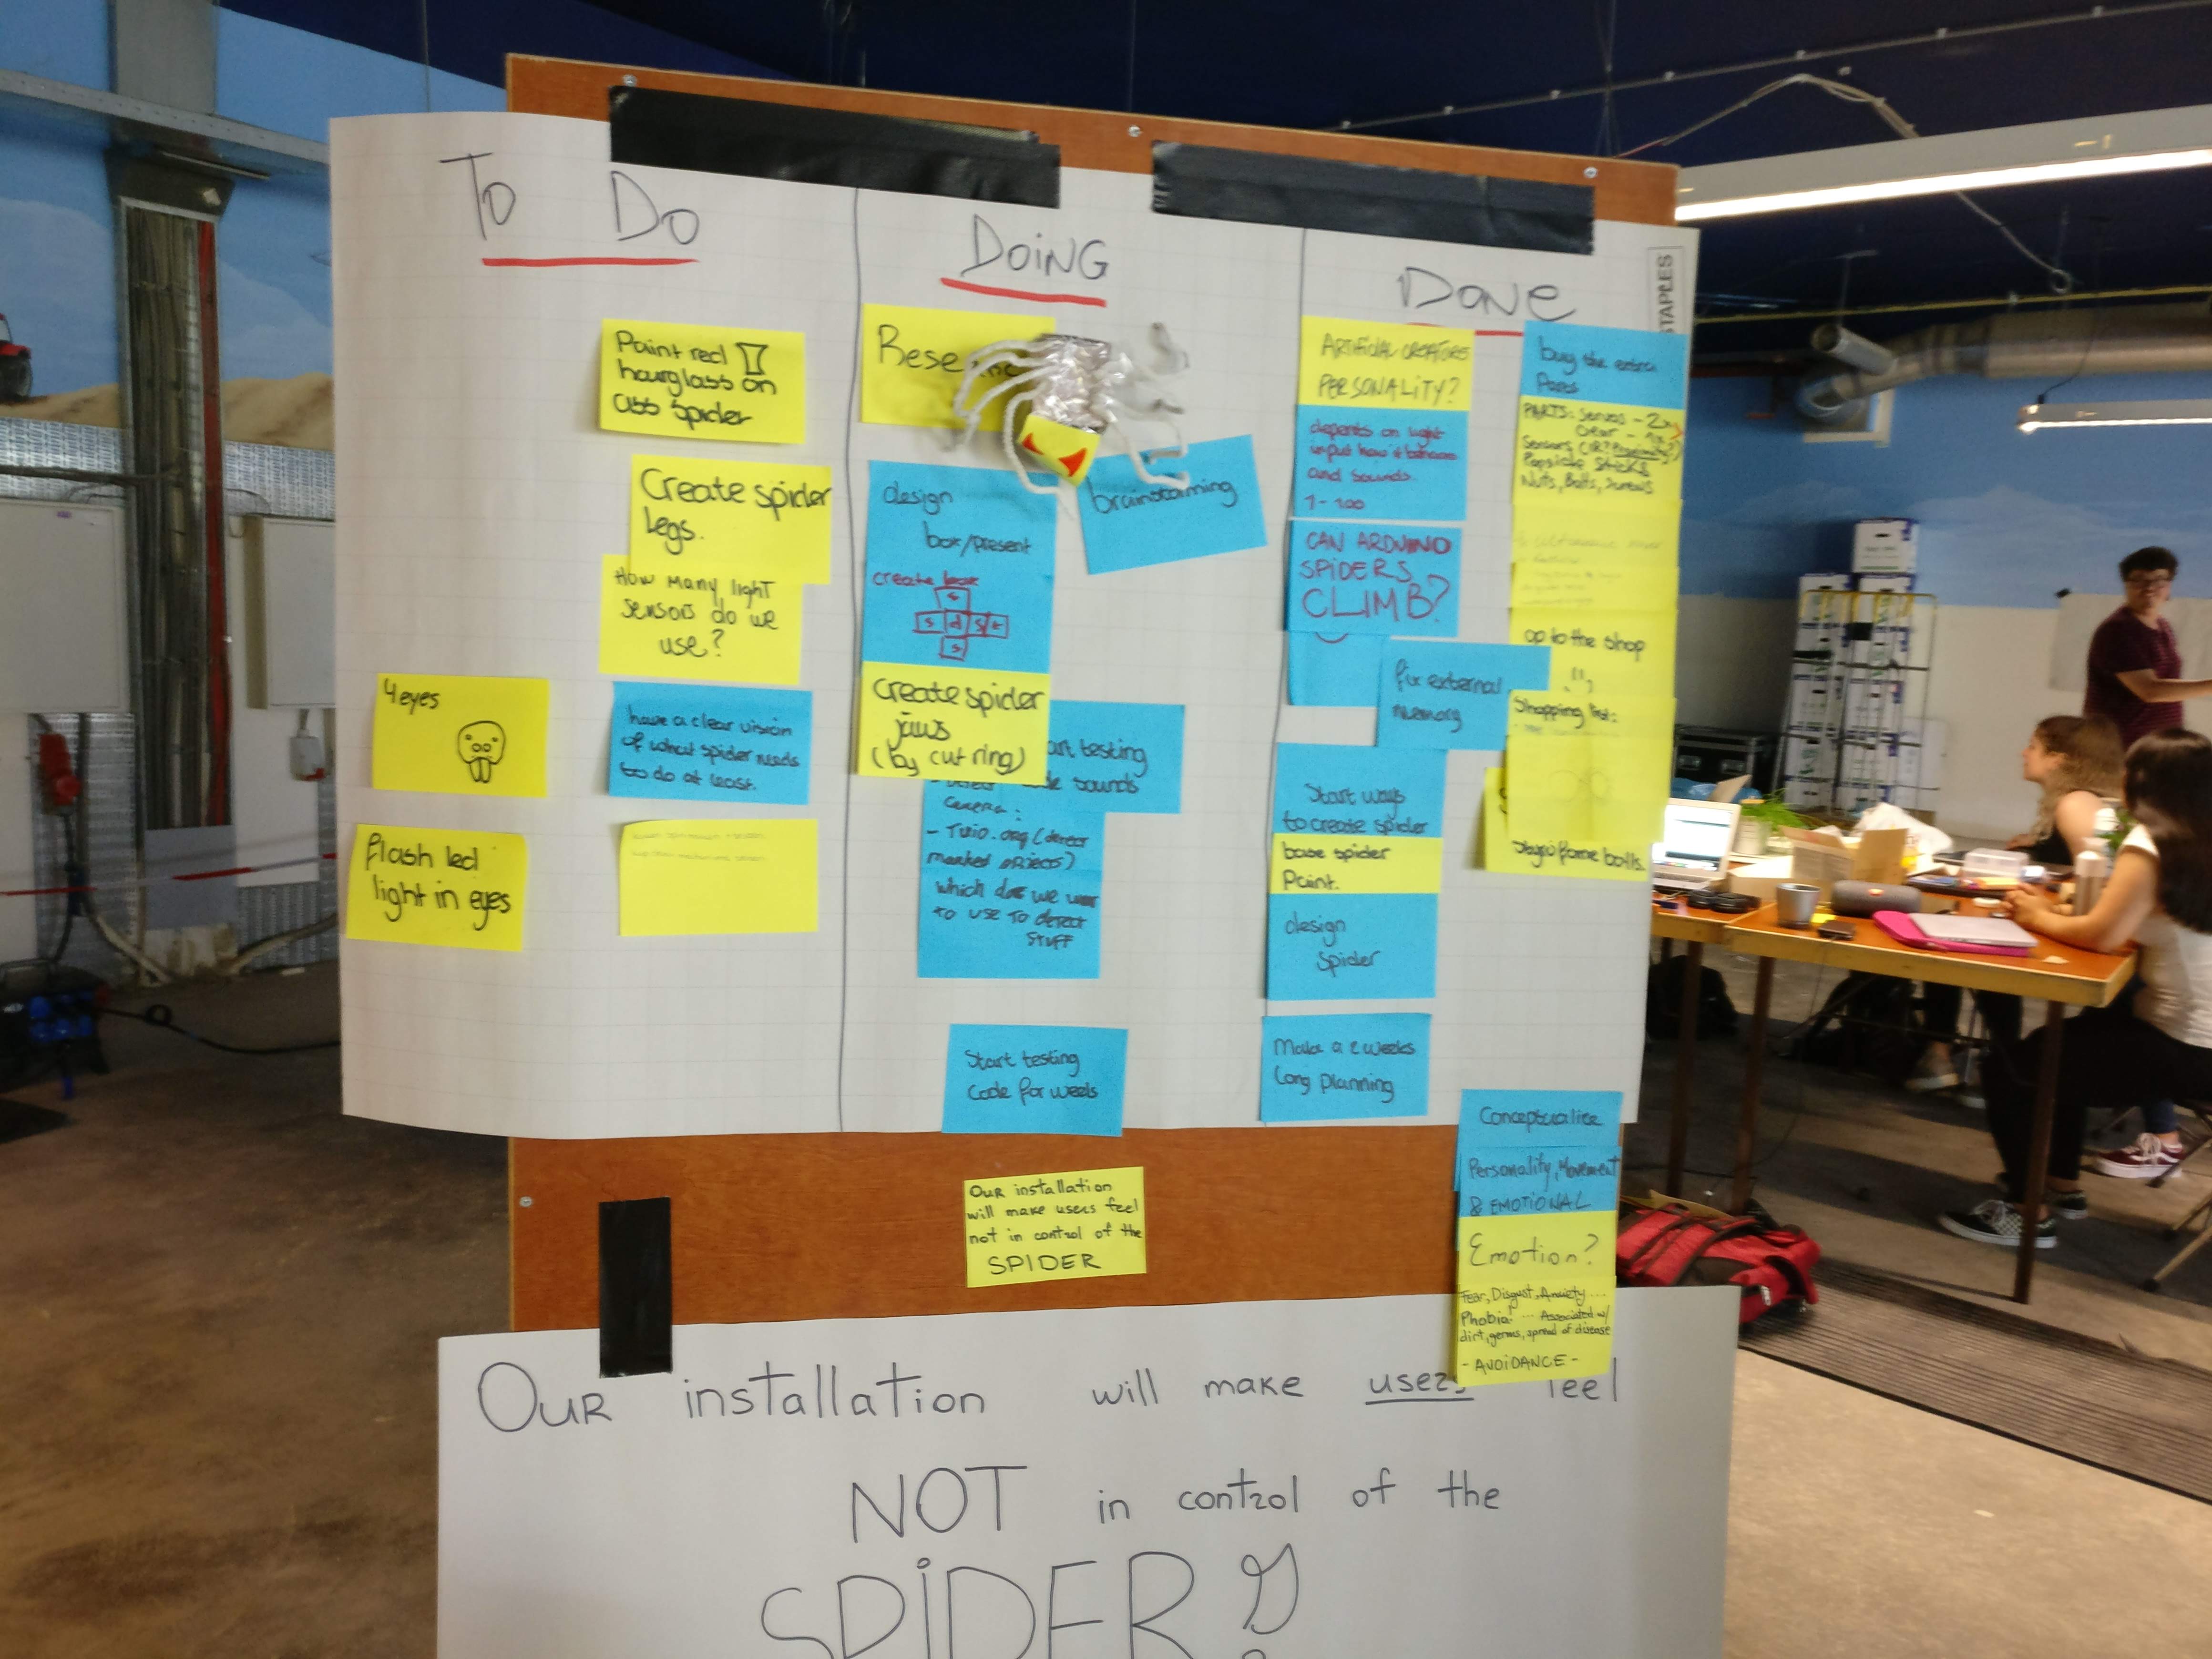 To Do
DOING
Done
STAPLES
Paint red
hourglass on
ass spider
Create spider
Legs.
How many light
sensors do we
use?
4 eyes
have a clear vision
of what spider needs
to do at least.
flash led
light in eyes
Rese
design
box/present
create box
s
s d s t
s
brainstorming
Create spider
jaws
(by cut ring)
art testing
sounds
camera:
- Tuio.org (detect
marked objects)
which do we
to use to detect
stuff
Start testing
Code for weels
ARTIFICIAL CREATURE
PERSONALITY?
depends on light
input how it behaves
and sounds.
1-100
CAN ARDUINO
SPIDERS
CLIMB?
fix external
memory
Start ways
to create spider
base spider
Paint.
design
spider
Make a 2 weeks
long planning
buy the extra
Parts
PARTS: servos - 2x
Sensors (IR?
Popsicle sticks
Nuts, Bolts, Screws
op to the shop
Shopping list:
bolls.
Conceptualize
Personality, Movement
& EMOTIONAL
Emotion?
Fear, Disgust, Anxiety ....
Phobia! ... Associated w/
dirt, germs, spread of disease
- AVOIDANCE -
OUR installation
will make users feel
not in control of the
SPIDER
OUR installation will make users feel
NOT in control of the
SPIDER!